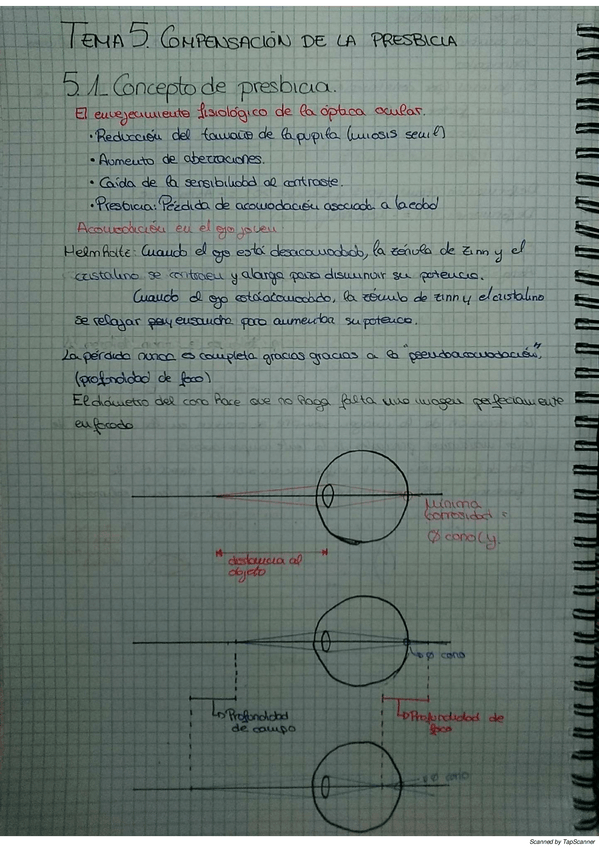 TEMA 5. COMPENSACIÓN DE LA PRESBICIA
5.1_Concepto de presbicia.
El envejecimiento fisiológico de la óptica ocular.
· Reducción del tamaño de la pupila (miosis senil)
· Aumento de aberraciones.
· Caída de la sensibilidad al contraste.
· Presbicia: Pérdida de acomodación asociada a la edad
Acomodación en el ojo joven
Helmholtz: Cuando el ojo está desacomodado, la zónula de Zinn y el
cristalino se contraen y alarga para disminuir su potencia.
Cuando el ojo está acomodado, la zónula de zinn y el cristalino
se relajan y ensancha para aumentar su potencia.
La pérdida nunca es completa gracias gracias a la "pseudoacomodación",
(profundidad de foco)
El diámetro del cono hace que no haga falta una imagen perfectamente
enfocada
Mínima
borrosidad =
Ø cono
distancia al
objeto
Ø cono
Profundidad
de campo
Profundidad de
foco
Ø cono
Scanned by TapScanner